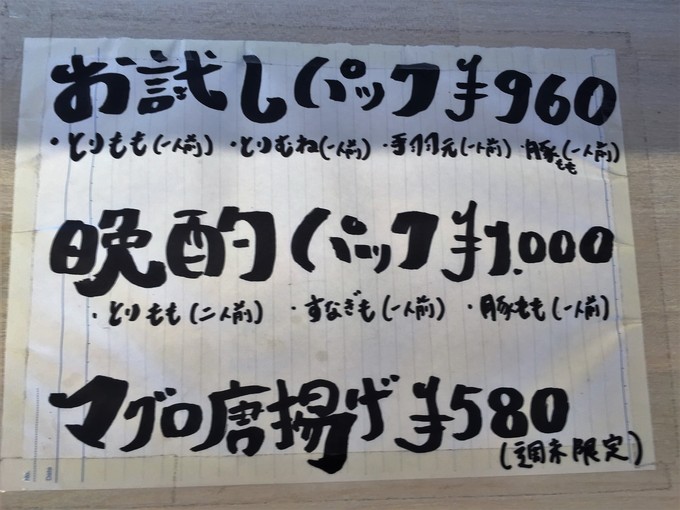 お試しパック¥960
・とりもも(一人前) ・とりむね(一人前) ・手羽元(一人前) ・豚もも(一人前)
晩酌パック¥1.000
・とりもも(二人前) ・すなぎも(一人前) ・豚もも(一人前)
マグロ唐揚げ¥580
(週末限定)
No.
Date